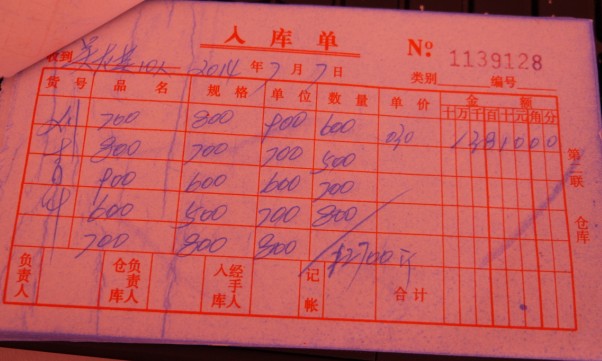 入库单
No. 1139128
收到 10人 2014年7月7日 类别 编号
货号 品名 规格 单位 数量 单价 金额
十万千百十元角分
700 800 900 600 030 1381000
800 700 700 500
900 600 600 700
600 500 700 800
700 800 800
12700
合计
负责人 仓库负责人 入库经手人 记帐
第二联 仓库